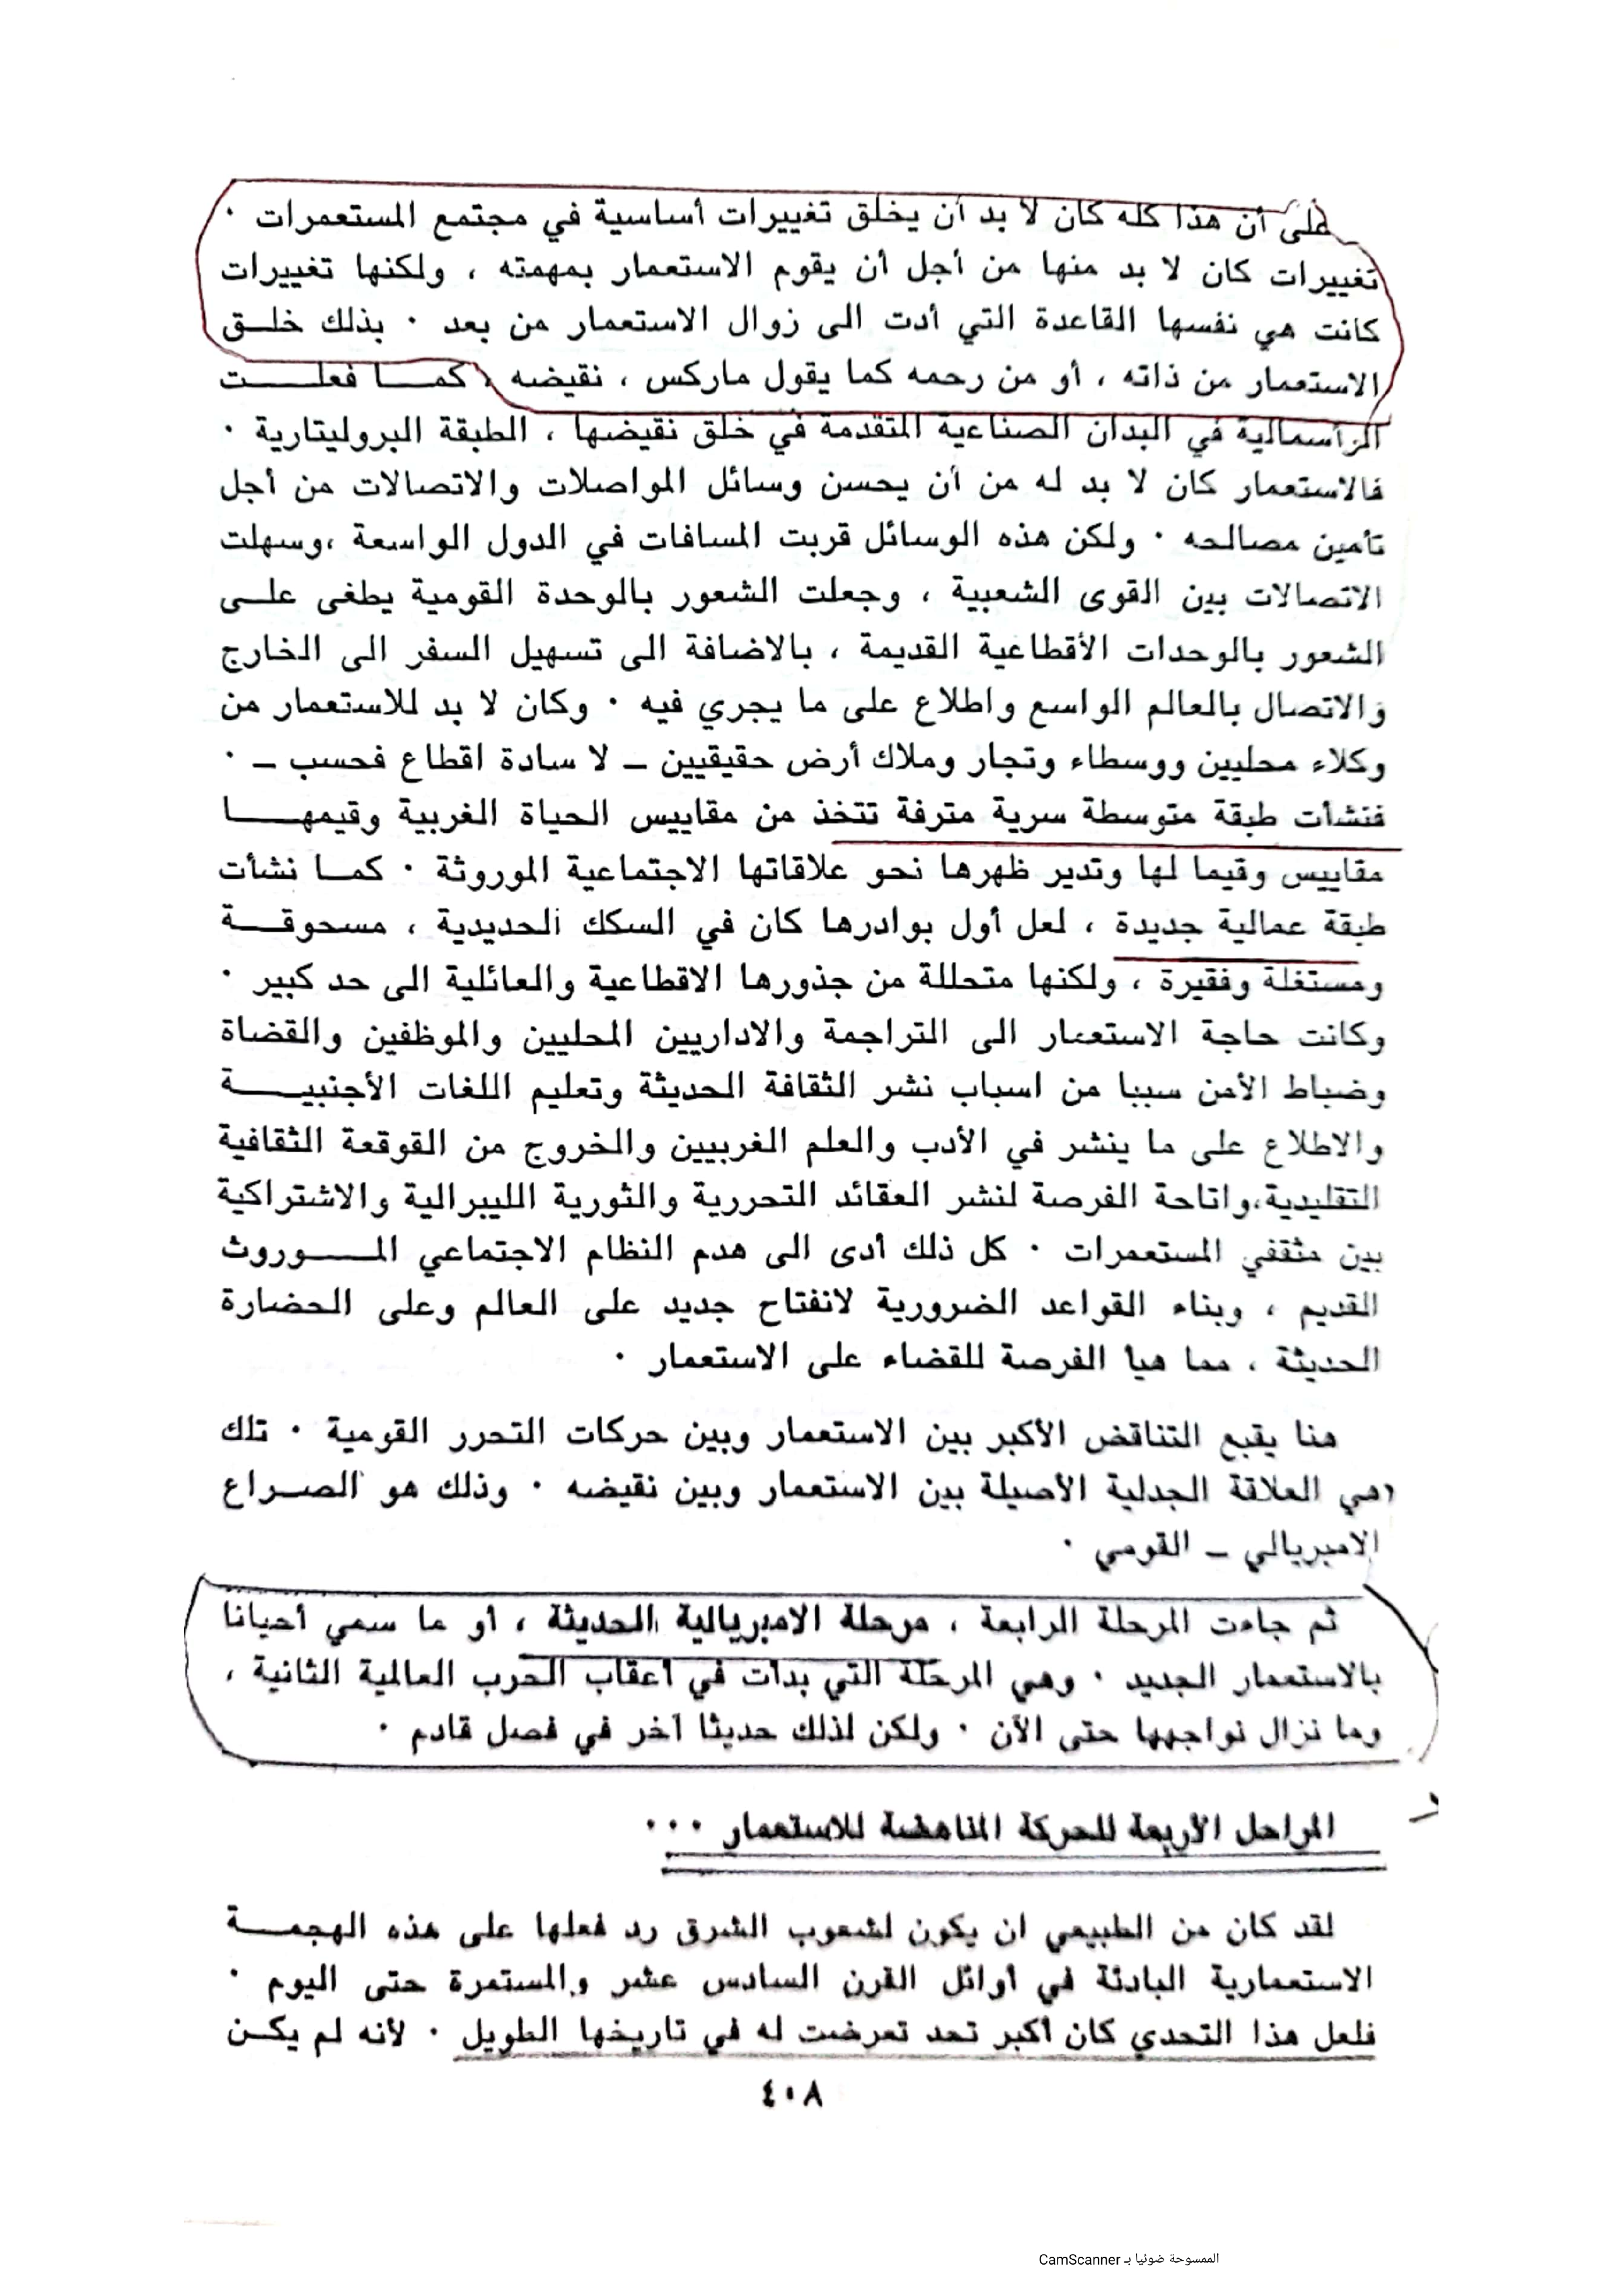 على أن هذا كله كان لا بد أن يخلق تغييرات أساسية في مجتمع المستعمرات ٠
تغييرات كان لا بد منها من أجل أن يقوم الاستعمار بمهمته ، ولكنها تغييرات
كانت هي نفسها القاعدة التي أدت الى زوال الاستعمار من بعد ٠ بذلك خلــق
الاستعمار من ذاته ، أو من رحمه كما يقول ماركس ، نقيضه ، كمــا فعلــت
الرأسمالية في البدان الصناعية المتقدمة في خلق نقيضها ، الطبقة البروليتارية ٠
فالاستعمار كان لا بد له من أن يحسن وسائل المواصلات والاتصالات من أجل
تأمين مصالحه ٠ ولكن هذه الوسائل قربت المسافات في الدول الواسعة ،وسهلت
الاتصالات بين القوى الشعبية ، وجعلت الشعور بالوحدة القومية يطغى علــى
الشعور بالوحدات الأقطاعية القديمة ، بالاضافة الى تسهيل السفر الى الخارج
والاتصال بالعالم الواسع واطلاع على ما يجري فيه ٠ وكان لا بد للاستعمار من
وكلاء محليين ووسطاء وتجار وملاك أرض حقيقيين ــ لا سادة اقطاع فحسب ــ ٠
فنشأت طبقة متوسطة سرية مترفة تتخذ من مقاييس الحياة الغربية وقيمهــا
مقاييس وقيما لها وتدير ظهرها نحو علاقاتها الاجتماعية الموروثة ٠ كمــا نشأت
طبقة عمالية جديدة ، لعل أول بوادرها كان في السكك الحديدية ، مسحوقــة
ومستغلة وفقيرة ، ولكنها متحللة من جذورها الاقطاعية والعائلية الى حد كبير ٠
وكانت حاجة الاستعمار الى التراجمة والاداريين المحليين والموظفين والقضاة
وضباط الأمن سببا من اسباب نشر الثقافة الحديثة وتعليم اللغات الأجنبيــة
والاطلاع على ما ينشر في الأدب والعلم الغربيين والخروج من القوقعة الثقافية
التقليدية،واتاحة الفرصة لنشر العقائد التحررية والثورية الليبرالية والاشتراكية
بين مثقفي المستعمرات ٠ كل ذلك أدى الى هدم النظام الاجتماعي المــوروث
القديم ، وبناء القواعد الضرورية لانفتاح جديد على العالم وعلى الحضارة
الحديثة ، مما هيأ الفرصة للقضاء على الاستعمار ٠
هنا يقبع التناقض الأكبر بين الاستعمار وبين حركات التحرر القومية ٠ تلك
هي العلاقة الجدلية الأصيلة بين الاستعمار وبين نقيضه ٠ وذلك هو الصــراع
الامبريالي ــ القومي ٠
ثم جاءت المرحلة الرابعة ، مرحلة الامبريالية الحديثة ، أو ما سمي أحيانا
بالاستعمار الجديد ٠ وهي المرحلة التي بدأت في أعقاب الحرب العالمية الثانية ،
وما نزال نواجهها حتى الآن ٠ ولكن لذلك حديثا آخر في فصل قادم ٠
المراحل الأربعة للحركة المناهضة للاستعمار ٠٠٠
لقد كان من الطبيعي ان يكون لشعوب الشرق رد فعلها على هذه الهجمــة
الاستعمارية البادئة في أوائل القرن السادس عشر والمستمرة حتى اليوم ٠
فلعل هذا التحدي كان أكبر تحد تعرضت له في تاريخها الطويل ٠ لأنه لم يكــن
٤٠٨
الممسوحة ضوئيا بـ CamScanner